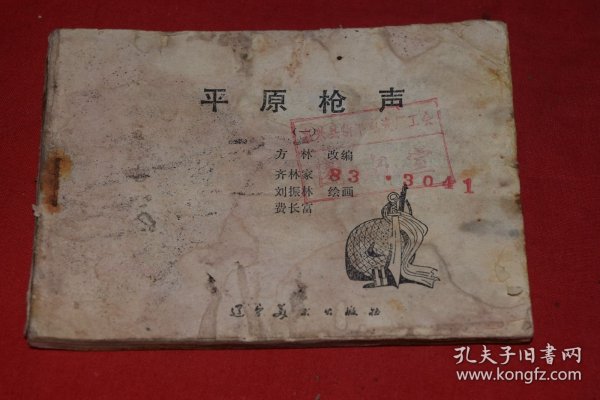 平原枪声
方林 改编
齐林家
刘振林 绘画
费长富
83·3041
辽宁美术出版社
孔夫子旧书网
www.kongfz.com